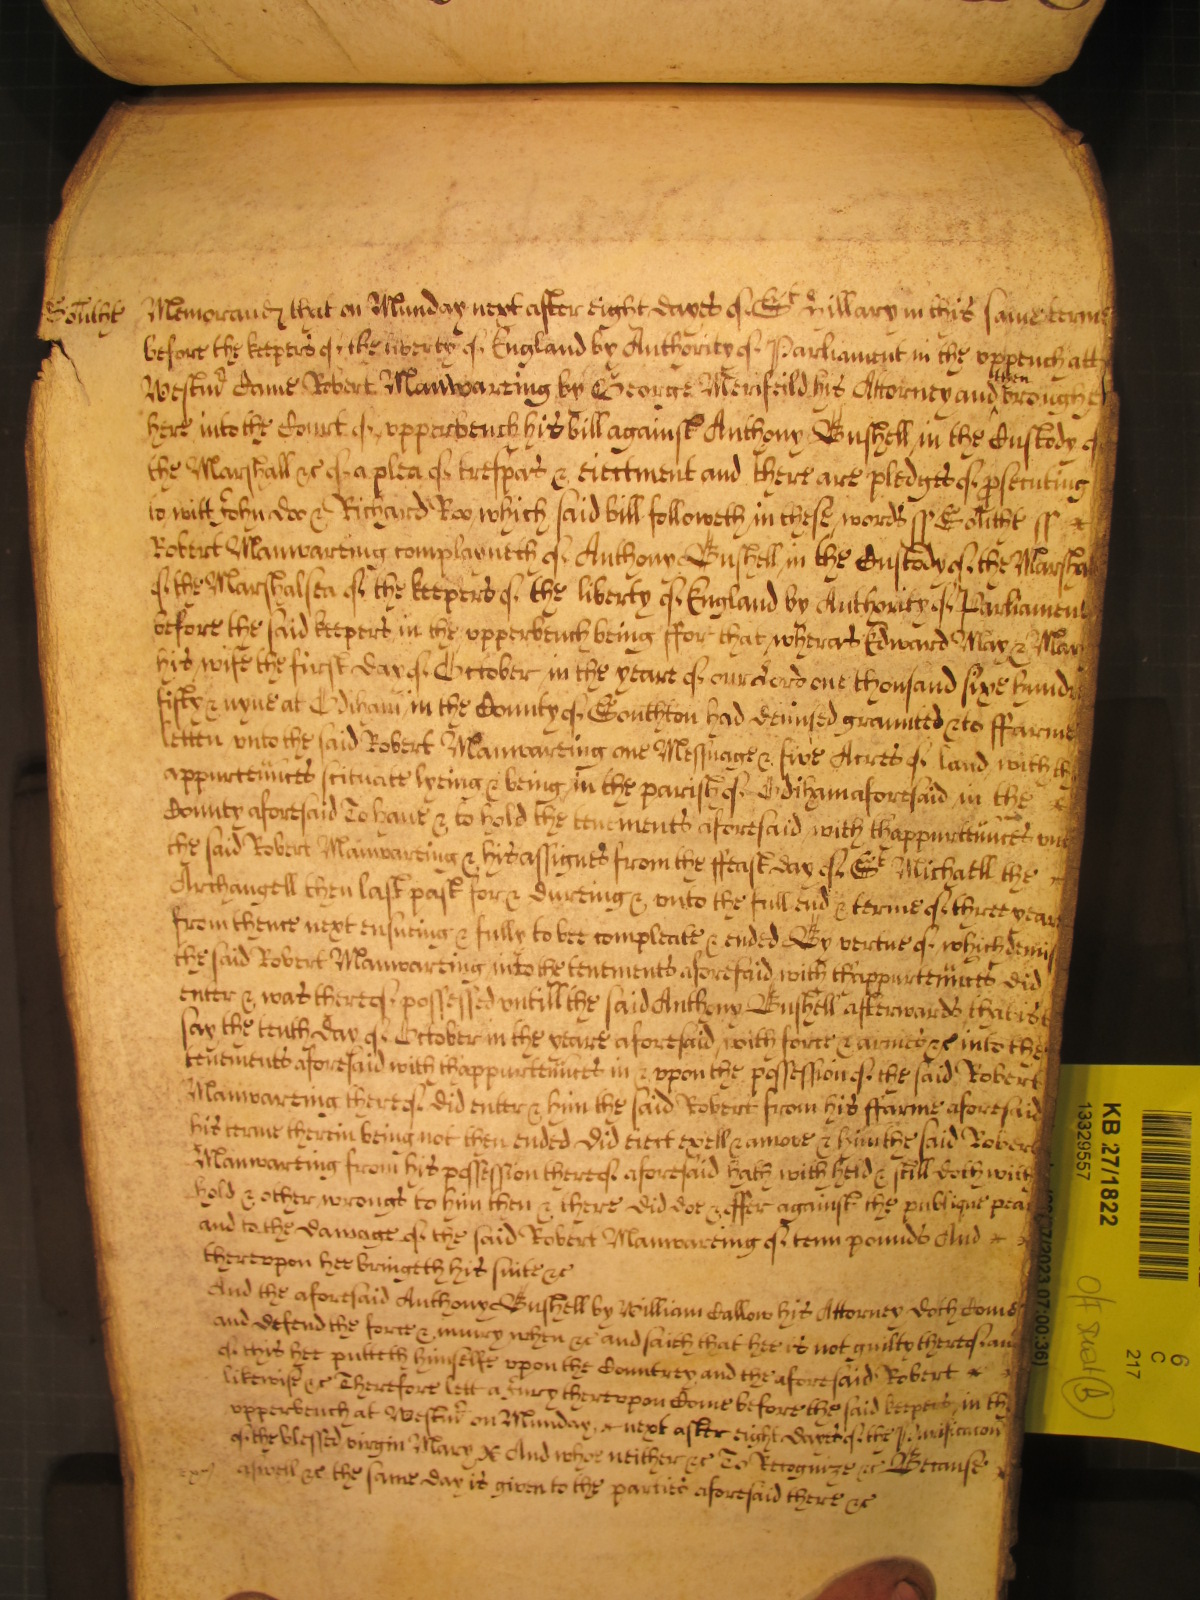 Southt Memorand that on Munday next after eight dayes of St Hillary in this same terme
before the keepers of the liberty of England by Authority of Parliament in the upperbench att
Westmr Came Robert Manwareing by George Merifeild his Attorney and then brought
here into the Court of upperbench his bill against Anthony Bushell in the Custody of
the Marshall &c of a plea of trespas & eiectment and there are pledges of prsecuting
to witt John Doo & Richard Roo which said bill followeth in these words ss Southt ss
Robert Manwareing complayneth of Anthony Bushell in the Custody of the Marshall
of the Marshalsea of the keepers of the liberty of England by Authority of Parliament
before the said keepers in the upperbench being ffor that wheras Edward May & Mary
his wife the first day of October in the yeare of our Lord one thousand sixe hundr
fifty & nyne at Odiham in the County of Southton had demised graunted & to ffarme
letten unto the said Robert Manwareing one Messuage & five Acres of land with th
appurtennces scituate lyeing & being in the parish of Odiham aforesaid in the
County aforesaid To have & to hold the tenements aforesaid with thappurtennces unt
the said Robert Manwareing & his assignes from the ffeast day of St Michaell the
Archangell then last past for & dureing & unto the full end & terme of three years
from thence next ensueing & fully to bee compleate & ended By vertue of which demis
the said Robert Manwareing into the tenements aforesaid with thappurtennces did
enter & was thereof possessed untill the said Anthony Bushell afterwards that is t
say the tenth day of October in the yeare aforesaid with force & armes &c into the
tenements aforesaid with thappurtennces in & upon the possession of the said Robert
Manwareing thereof did enter & him the said Robert from his ffarme aforesaid
his terme therein being not then ended did eiect expell & amove & him the said Robert
Manwareing from his possession thereof aforesaid hath with held & still doth with
hold & other wronges to him then & there did doe & offer against the publique peac
and to the damage of the said Robert Manwareing of tenn pounds And
thereupon hee bringeth his suite &c
And the aforesaid Anthony Bushell by William Callow his Attorney doth Come
and defend the force & iniury when &c and saith that hee is not guilty thereof an
of this hee putteth himselfe upon the Countrey and the aforesaid Robert
likewise &c Therefore lett a Jury thereupon Come before the said keepers in th
upperbench at Westmr on Munday next after eight dayes of the Purificacon
of the blessed virgin Mary & And who neither &c To Recognize &c Because
aswell &c the same day is given to the parties aforesaid there &c
KB 27/1822
13329557
6
C
217